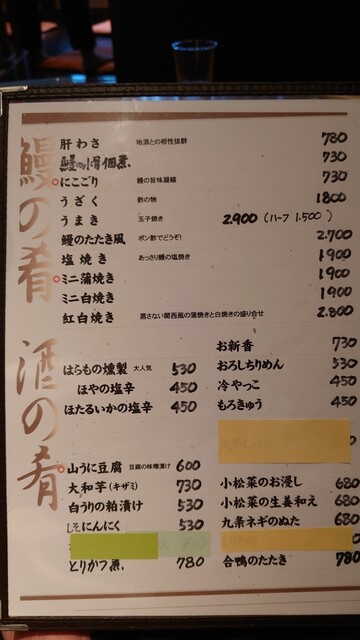 鰻の肴
肝わさ 地酒との相性抜群 780
鰻の小骨佃煮 730
にこごり 鰻の旨味凝縮 730
うざく 酢の物 1800
うまき 玉子焼き 2.900 (ハーフ 1.500)
鰻のたたき風 ポン酢でどうぞ! 2.700
塩焼き あっさり鰻の塩焼き 1900
ミニ蒲焼き 1900
ミニ白焼き 1900
紅白焼き 蒸さない関西風の蒲焼きと白焼きの盛り合せ 2.800
酒の肴
お新香 730
はらもの燻製 大人気 530 おろしちりめん 530
ほやの塩辛 450 冷やっこ 450
ほたるいかの塩辛 450 もろきゅう 450
山うに豆腐 豆腐の味噌漬け 600
大和芋(キザミ) 730 小松菜のお浸し 680
白うりの粕漬け 530 小松菜の生姜和え 680
しそにんにく 530 九条ネギのぬた 680
とりかつ煮. 780 合鴨のたたき 780